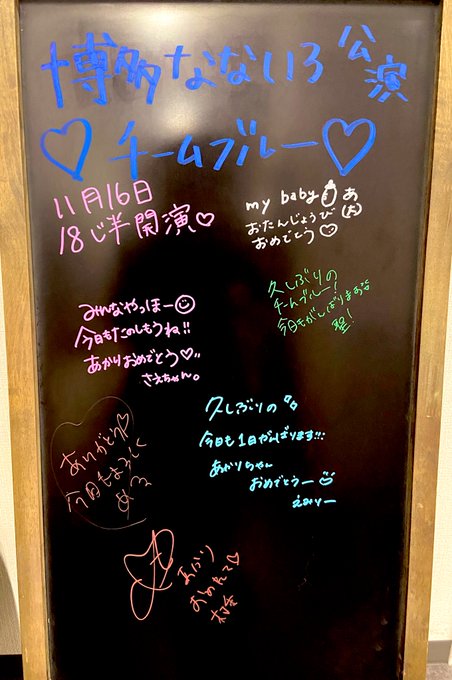 博多なないろ公演
♡チームブルー♡
11月16日
18じ半開演♡
my baby あ
おたんじょうび(大)
おめでとう
みんなやっほー
今日もたのしもうね!!
あかりおめでとう♡
さえちゃん。
久しぶりの
チームブルー!
今日もがんばりまあす
聖!
久しぶりの
今日も1日がんばります!!!
あかりちゃん
おめでとうー
えみりー
ありがとう♡
今日もよろしく
あかり
おめでとう♡